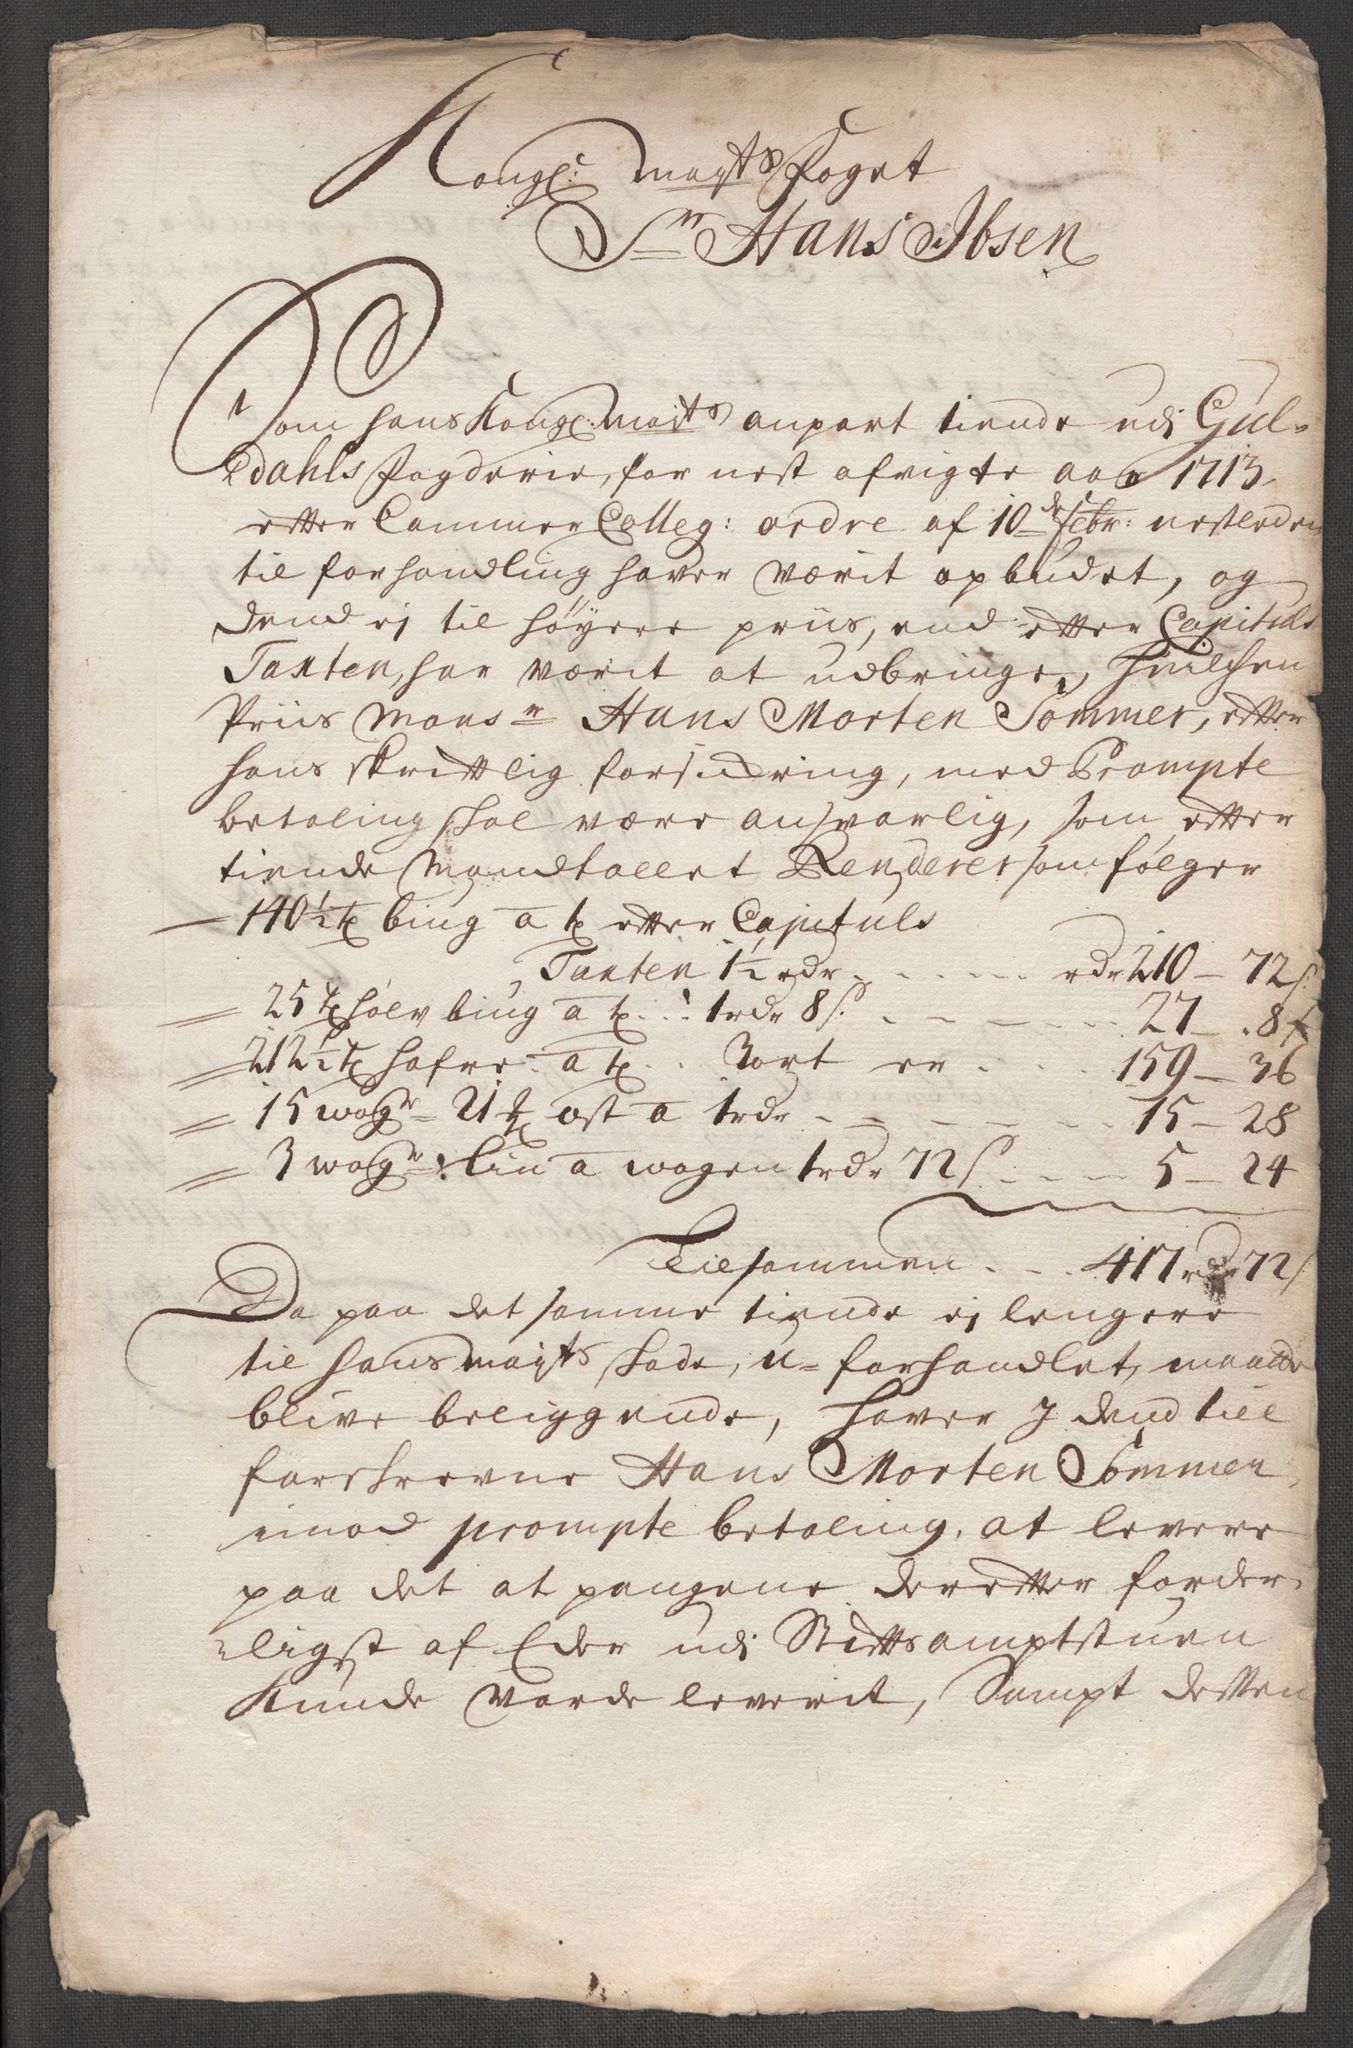 Kongl: mayts Foget
Sr Hans Ibsen
Som hans Kongl: mayts anpart tiende udj Gul-
dahls fogderie, for nest afvigte aar 1713
etter Cammer Colleg: ordre af 10de febr: nestleden
til forhandling haver værit opbudet, og
dend ej til høyere priis, end etter Capituls
Taxten, har værit at udbringe, hvilchen
Priis Monsr Hans Morten Sommer, etter
hans skrifftlig forsickring, med Prompte
betaling skal være ansvarlig, som etter
tiende Mandtallet Renderer som følger
140½ t biug a t etter Capituls
Taxten 1½ rdr - - - rdr 210 - 72 s
25 t sølv biug a t 1 rdr 8 s - - - 27 - 8 s
212½ t hafre a t 3 ort er - - - 159 - 36
15 wogr 21 ℔ ost a 1 rdr - - - 15 - 28
3 wogr: lin a wogen 1 rdr 72 s - - - 5 - 24
Tilsammen - - 417 rdr 72 s
Da paa det samme tiende ej lengere
til hans mayts skade, u-forhandlet, maatte
blive beliggende, haver I dend till
forschrevne Hans Morten Sommer,
imod prompte betaling, at levere
paa det at pengene deretter forder-
ligst af Eder udj Stiftsamptstuen
Kunde vorde leverit, Sampt detten